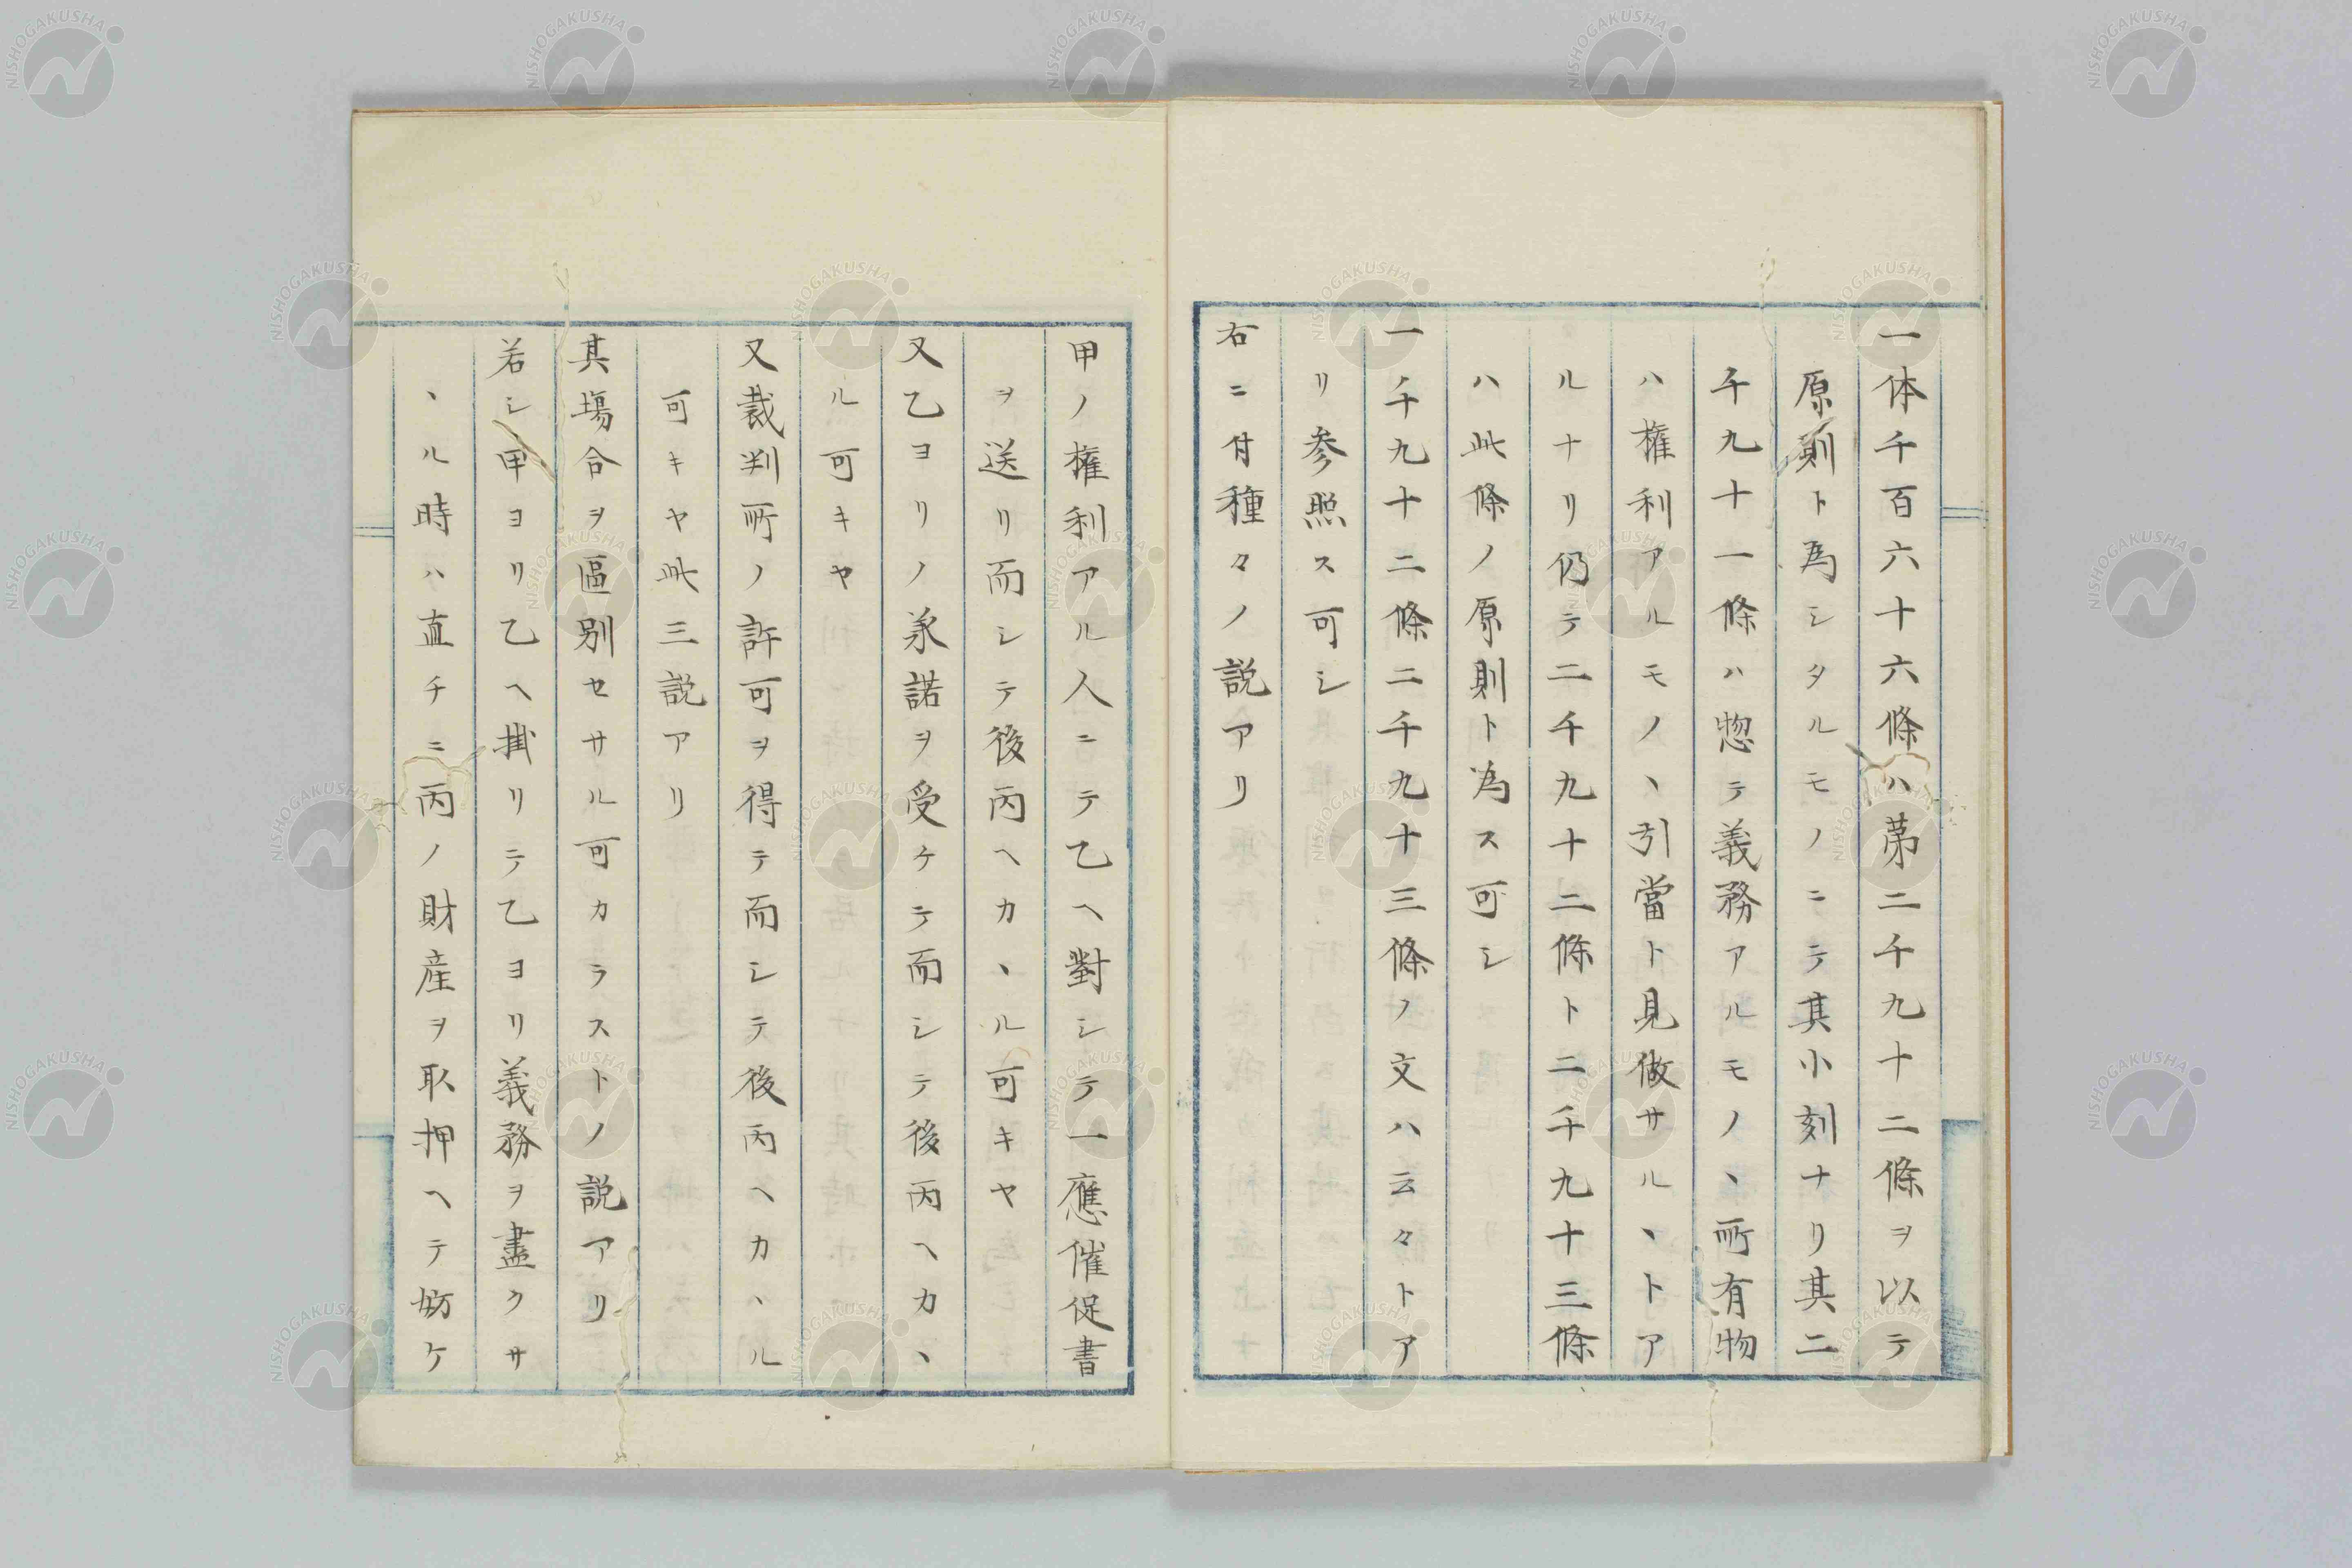 一体千百六十六條ハ苐二千九十二條ヲ以テ
原則ト為シタルモノニテ其小刻ナリ其二
千九十一條ハ惣テ義務アルモノヽ所有物
ハ権利アルモノヽ引當ト見做サルヽトア
ルナリ仍テ二千九十二條ト二千九十三條
ハ此條ノ原則ト為ス可シ
一千九十二條二千九十三條ノ文ハ云々トア
リ参照ス可シ
右ニ付種々ノ説アリ
甲ノ権利アル人ニテ乙ヘ對シテ一應催促書
ヲ送リ而シテ後丙ヘカヽル可キヤ
又乙ヨリノ承諾ヲ受ケテ而シテ後丙ヘカヽ
ル可キヤ
又裁判所ノ許可ヲ得テ而シテ後丙ヘカヽル
可キヤ此三説アリ
其塲合ヲ區别セサル可カラストノ説アリ
若シ甲ヨリ乙ヘ掛リテ乙ヨリ義務ヲ盡クサ
ヽル時ハ直チニ丙ノ財産ヲ取押ヘテ妨ケ
NISHOGAKUSHA